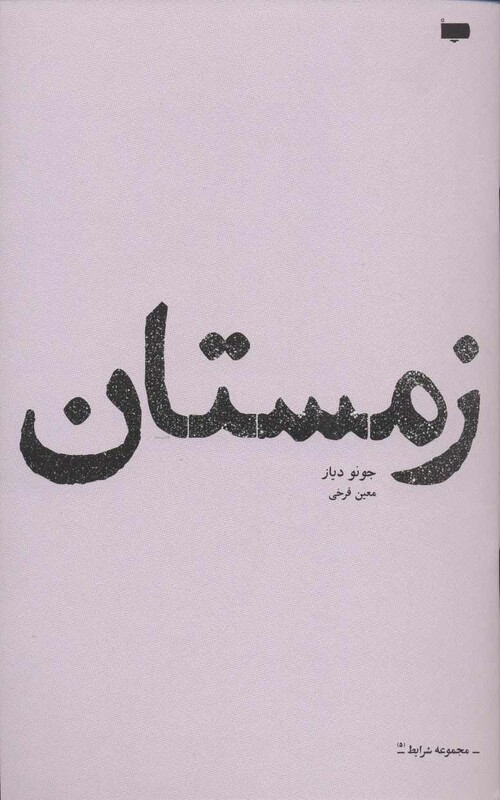 زمستان
جونو دیاز
معین فرخی
– مجموعه شرایط (۵) –